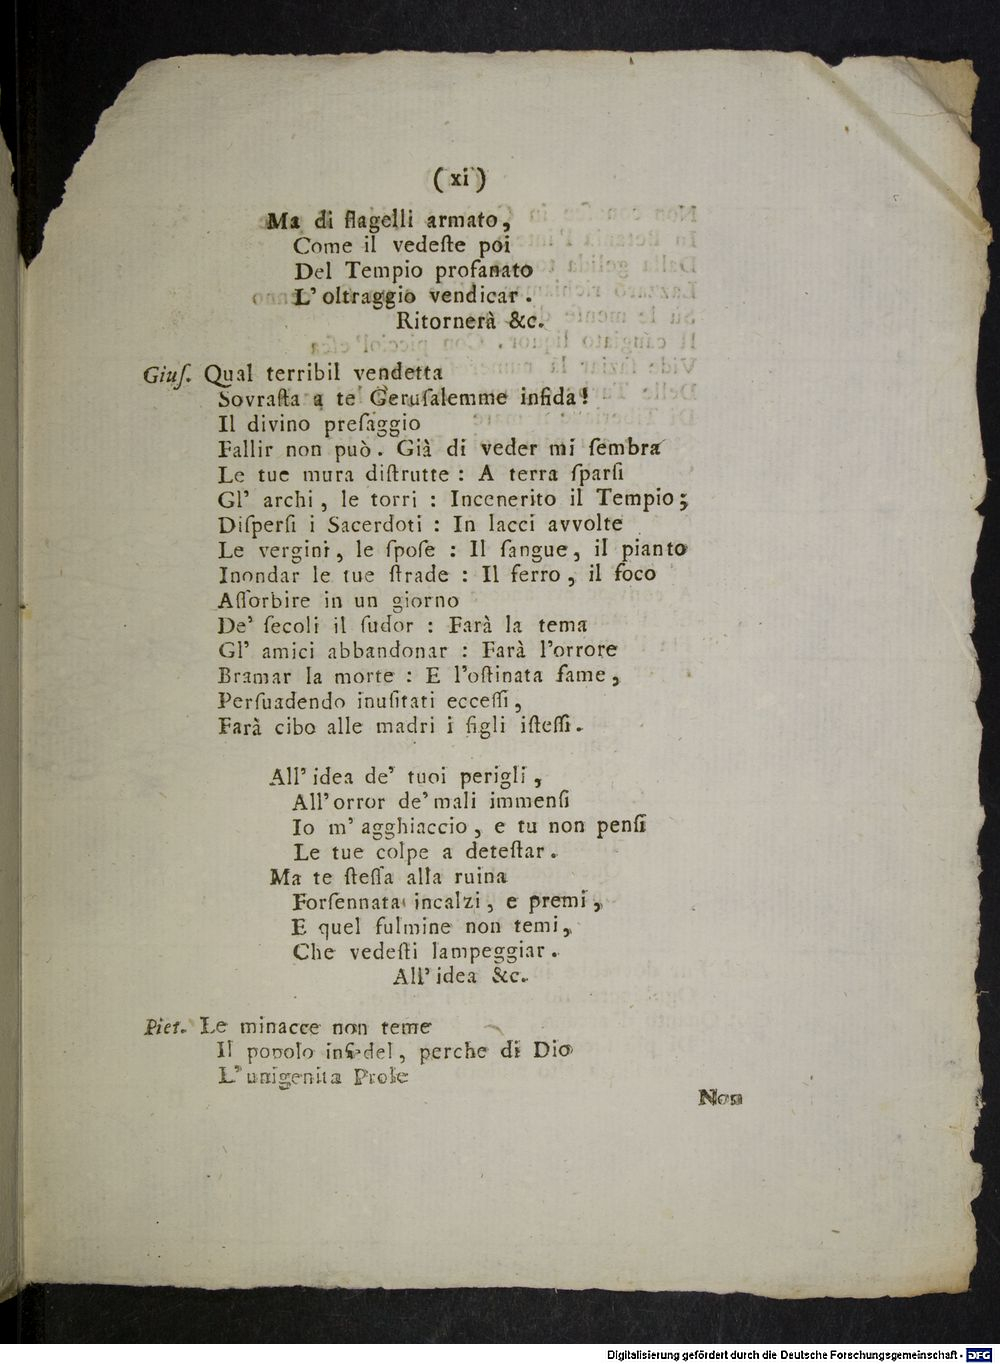 ( xi )
Ma di flagelli armato,
Come il vedeſte poi
Del Tempio profanato
L' oltraggio vendicar.
Ritornerà &c.
Giuſ. Qual terribil vendetta
Sovraſta a te Geruſalemme infida!
Il divino preſaggio
Fallir non può. Già di veder mi ſembra
Le tue mura diſtrutte: A terra ſparſi
Gl' archi, le torri: Incenerito il Tempio;
Diſperſi i Sacerdoti: In lacci avvolte
Le vergini, le ſpoſe: Il ſangue, il pianto
Inondar le tue ſtrade: Il ferro, il foco
Aſſorbire in un giorno
De' ſecoli il ſudor: Farà la tema
Gl' amici abbandonar: Farà l'orrore
Bramar la morte: E l'oſtinata fame,
Perſuadendo inuſitati ecceſſi,
Farà cibo alle madri i figli iſteſſi.
All' idea de' tuoi perigli,
All' orror de' mali immenſi
Io m' agghiaccio, e tu non penſi
Le tue colpe a deteſtar.
Ma te ſteſſa alla ruina
Forſennata incalzi, e premi,
E quel fulmine non temi,
Che vedeſti lampeggiar.
All' idea &c.
Piet. Le minacce non teme
Il popolo infedel, perche di Dio
L' unigenita Prole
Non
Digitalisierung gefördert durch die Deutsche Forschungsgemeinschaft - DFG